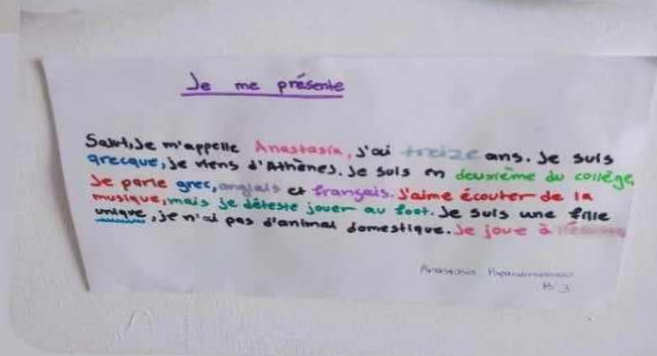 Je me présente
Salut, Je m'appelle Anastasia, J'ai treize ans. Je suis
grecque, Je viens d'Athènes. Je suis en deuxième du collège.
Je parle grec, anglais et français. J'aime écouter de la
musique, mais je déteste jouer au foot. Je suis une fille
unique, je n'ai pas d'animal domestique. Je joue à
Anastasia
B 3